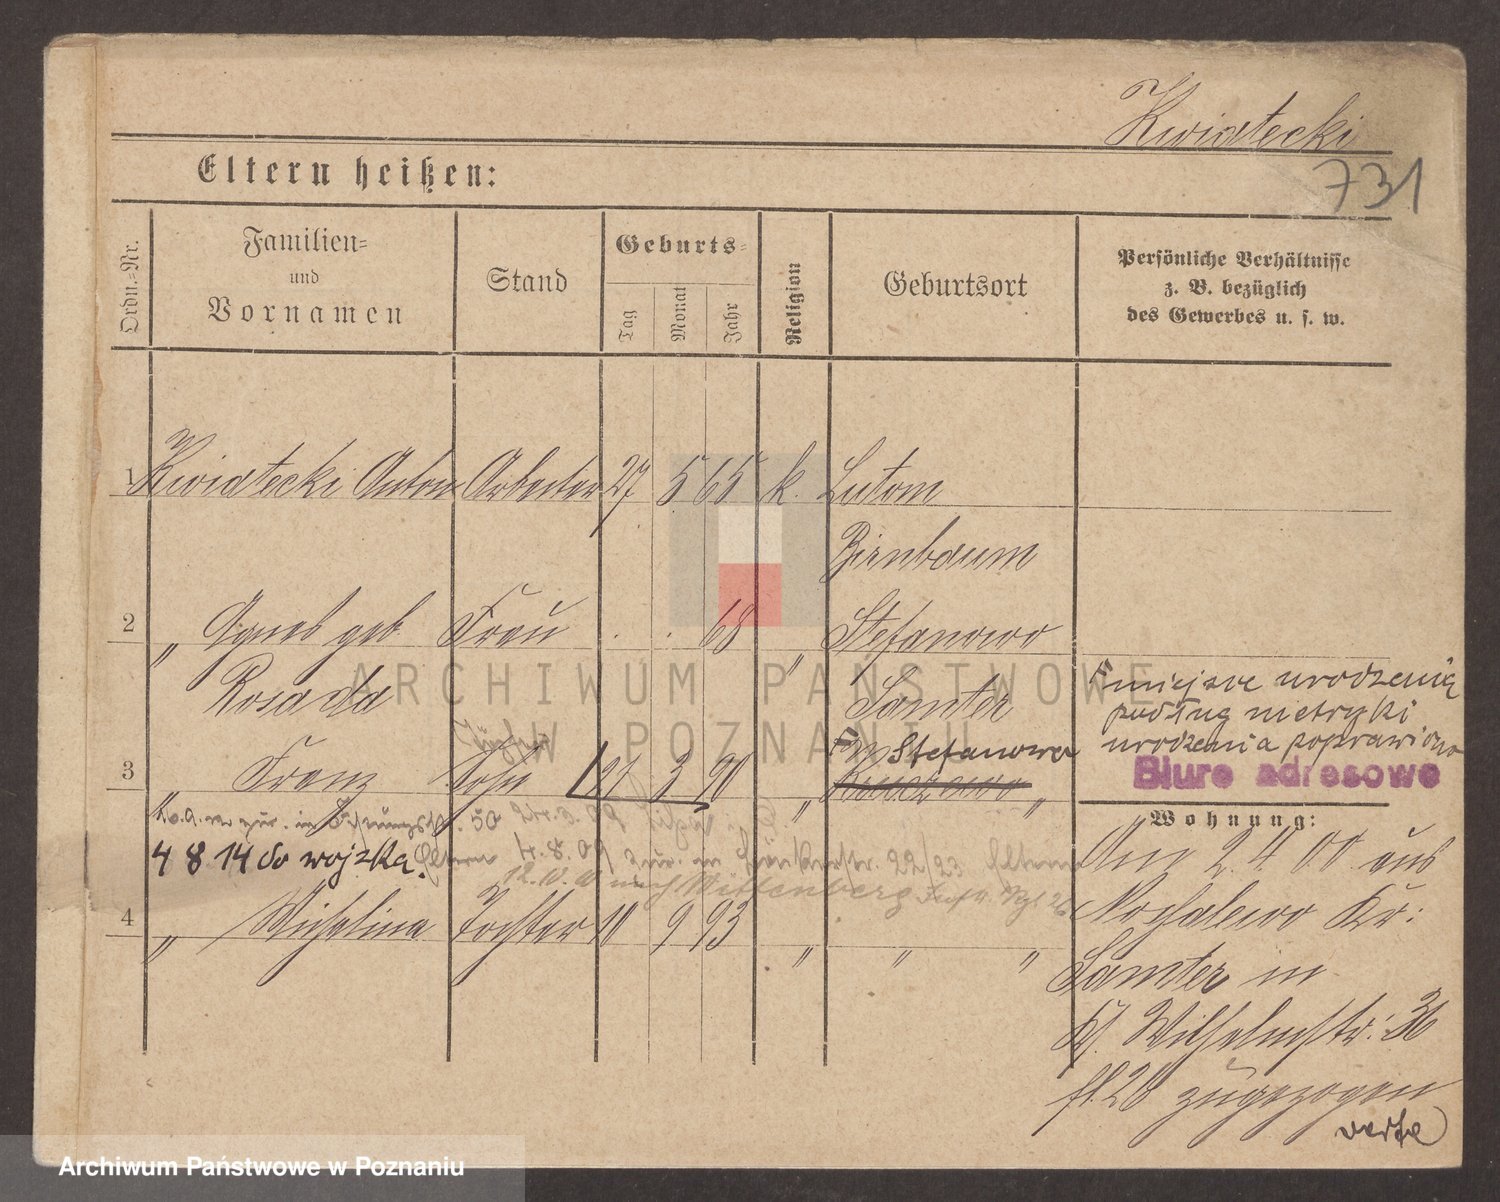 Kwiatecki
731
Eltern heißen:
Ordn.-Nr.
Familien-
und
Vornamen
Stand
Geburts-
Tag
Monat
Jahr
Religion
Geburtsort
Persönliche Verhältnisse
z. B. bezüglich
des Gewerbes u. s. w.
1 Kwiatecki Anton Arbeiter 27 5 65 k. Lutom
Birnbaum
2 " Agnes geb. Frau . . 68 " Stefanowo
Rosada Samter
miejsce urodzenia
podług metryki
urodzenia poprawiono
Biuro adresowe
Stefanowo
3 " Franz Sohn 27 3 90 " "
4 8 14 do wojska. Eltern 22/23 Eltern
nach Wittenberg
4 " Michalina Tochter 10 9 93 " " "
Wohnung:
Am 2.4.00 aus
Kr:
Samter in
Wilhelmstr: 36
zugezogen
verte
ARCHIWUM PAŃSTWOWE
W POZNANIU
Archiwum Państwowe w Poznaniu